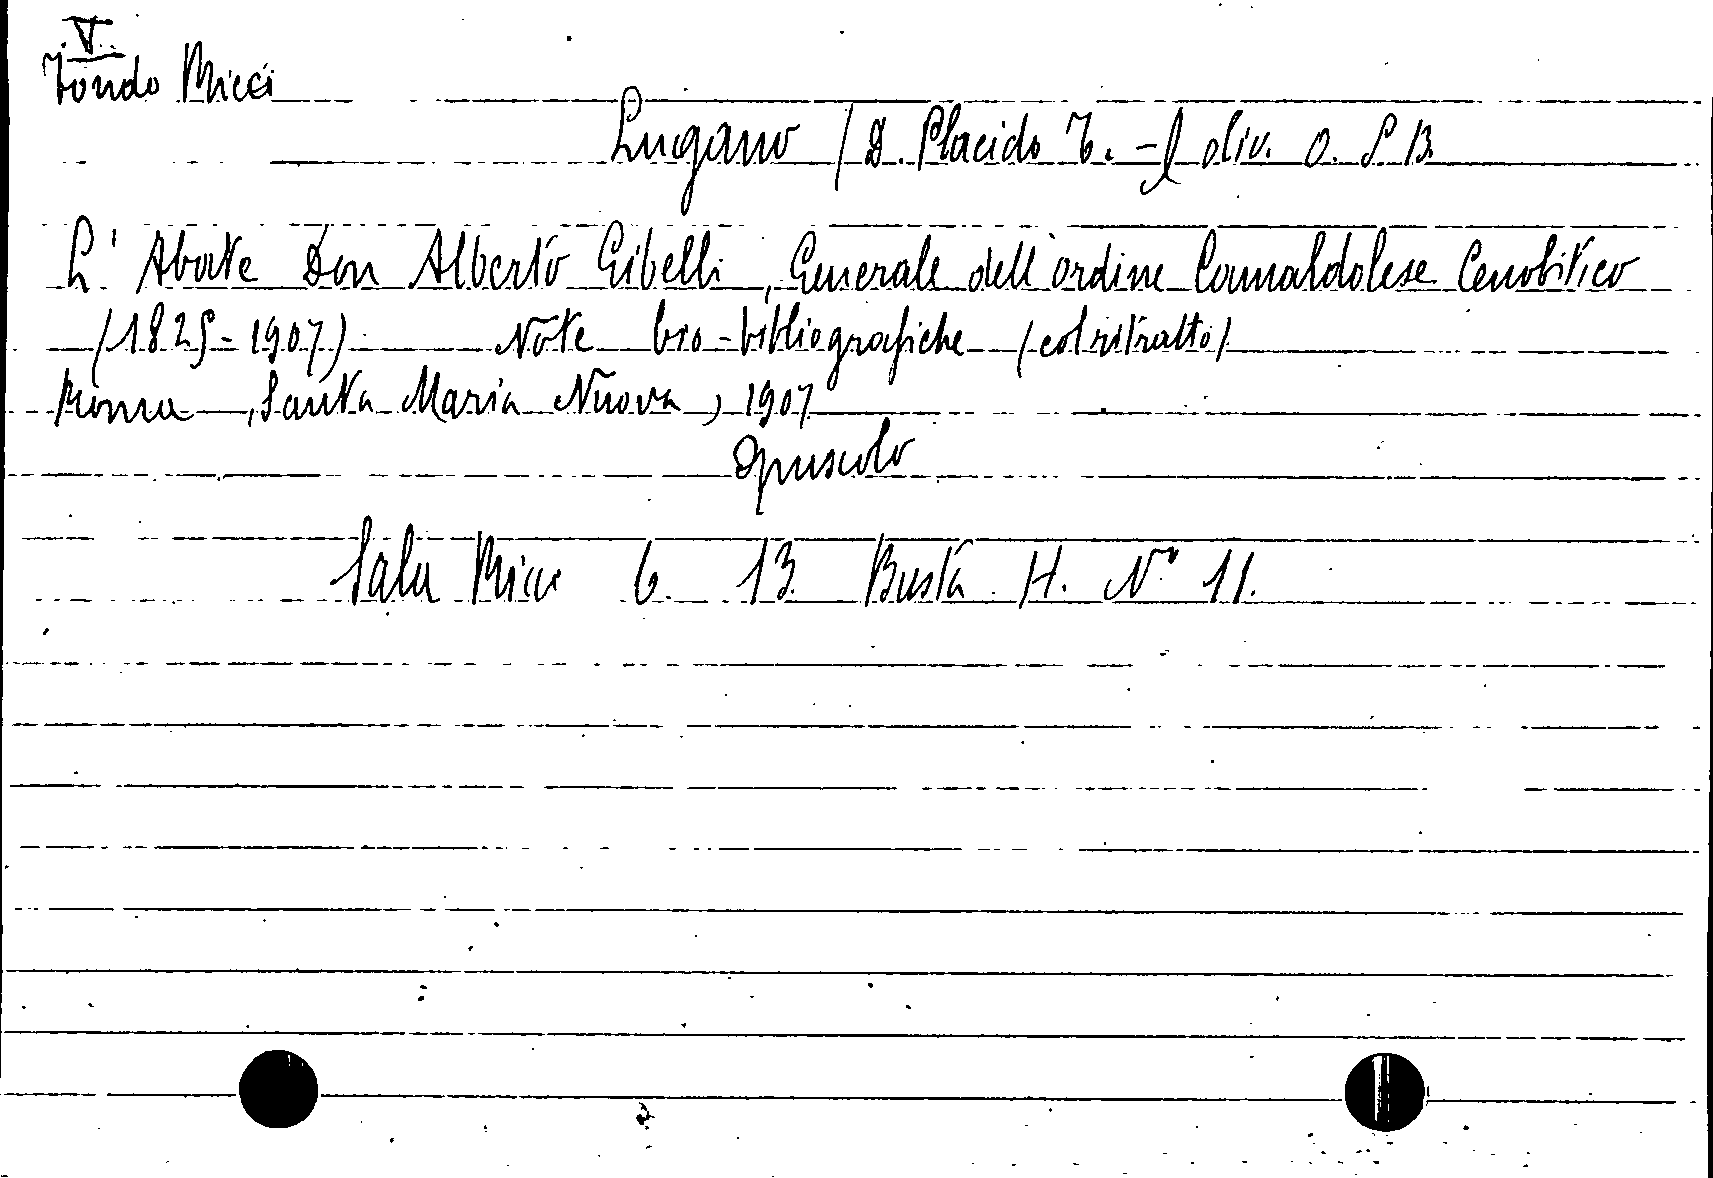 V.
Fondo Micci
Lugano / D. Placido T. - oliv. O. S B.
L' Abate Don Alberto Gibelli, Generale dell'ordine Camaldolese Cenobitico
(1825-1907) Note bio-bibliografiche (col ritratto)
Roma, Santa Maria Nuova, 1907
Opuscolo
Sala Micci 6. 13. Busta H. N° 11.